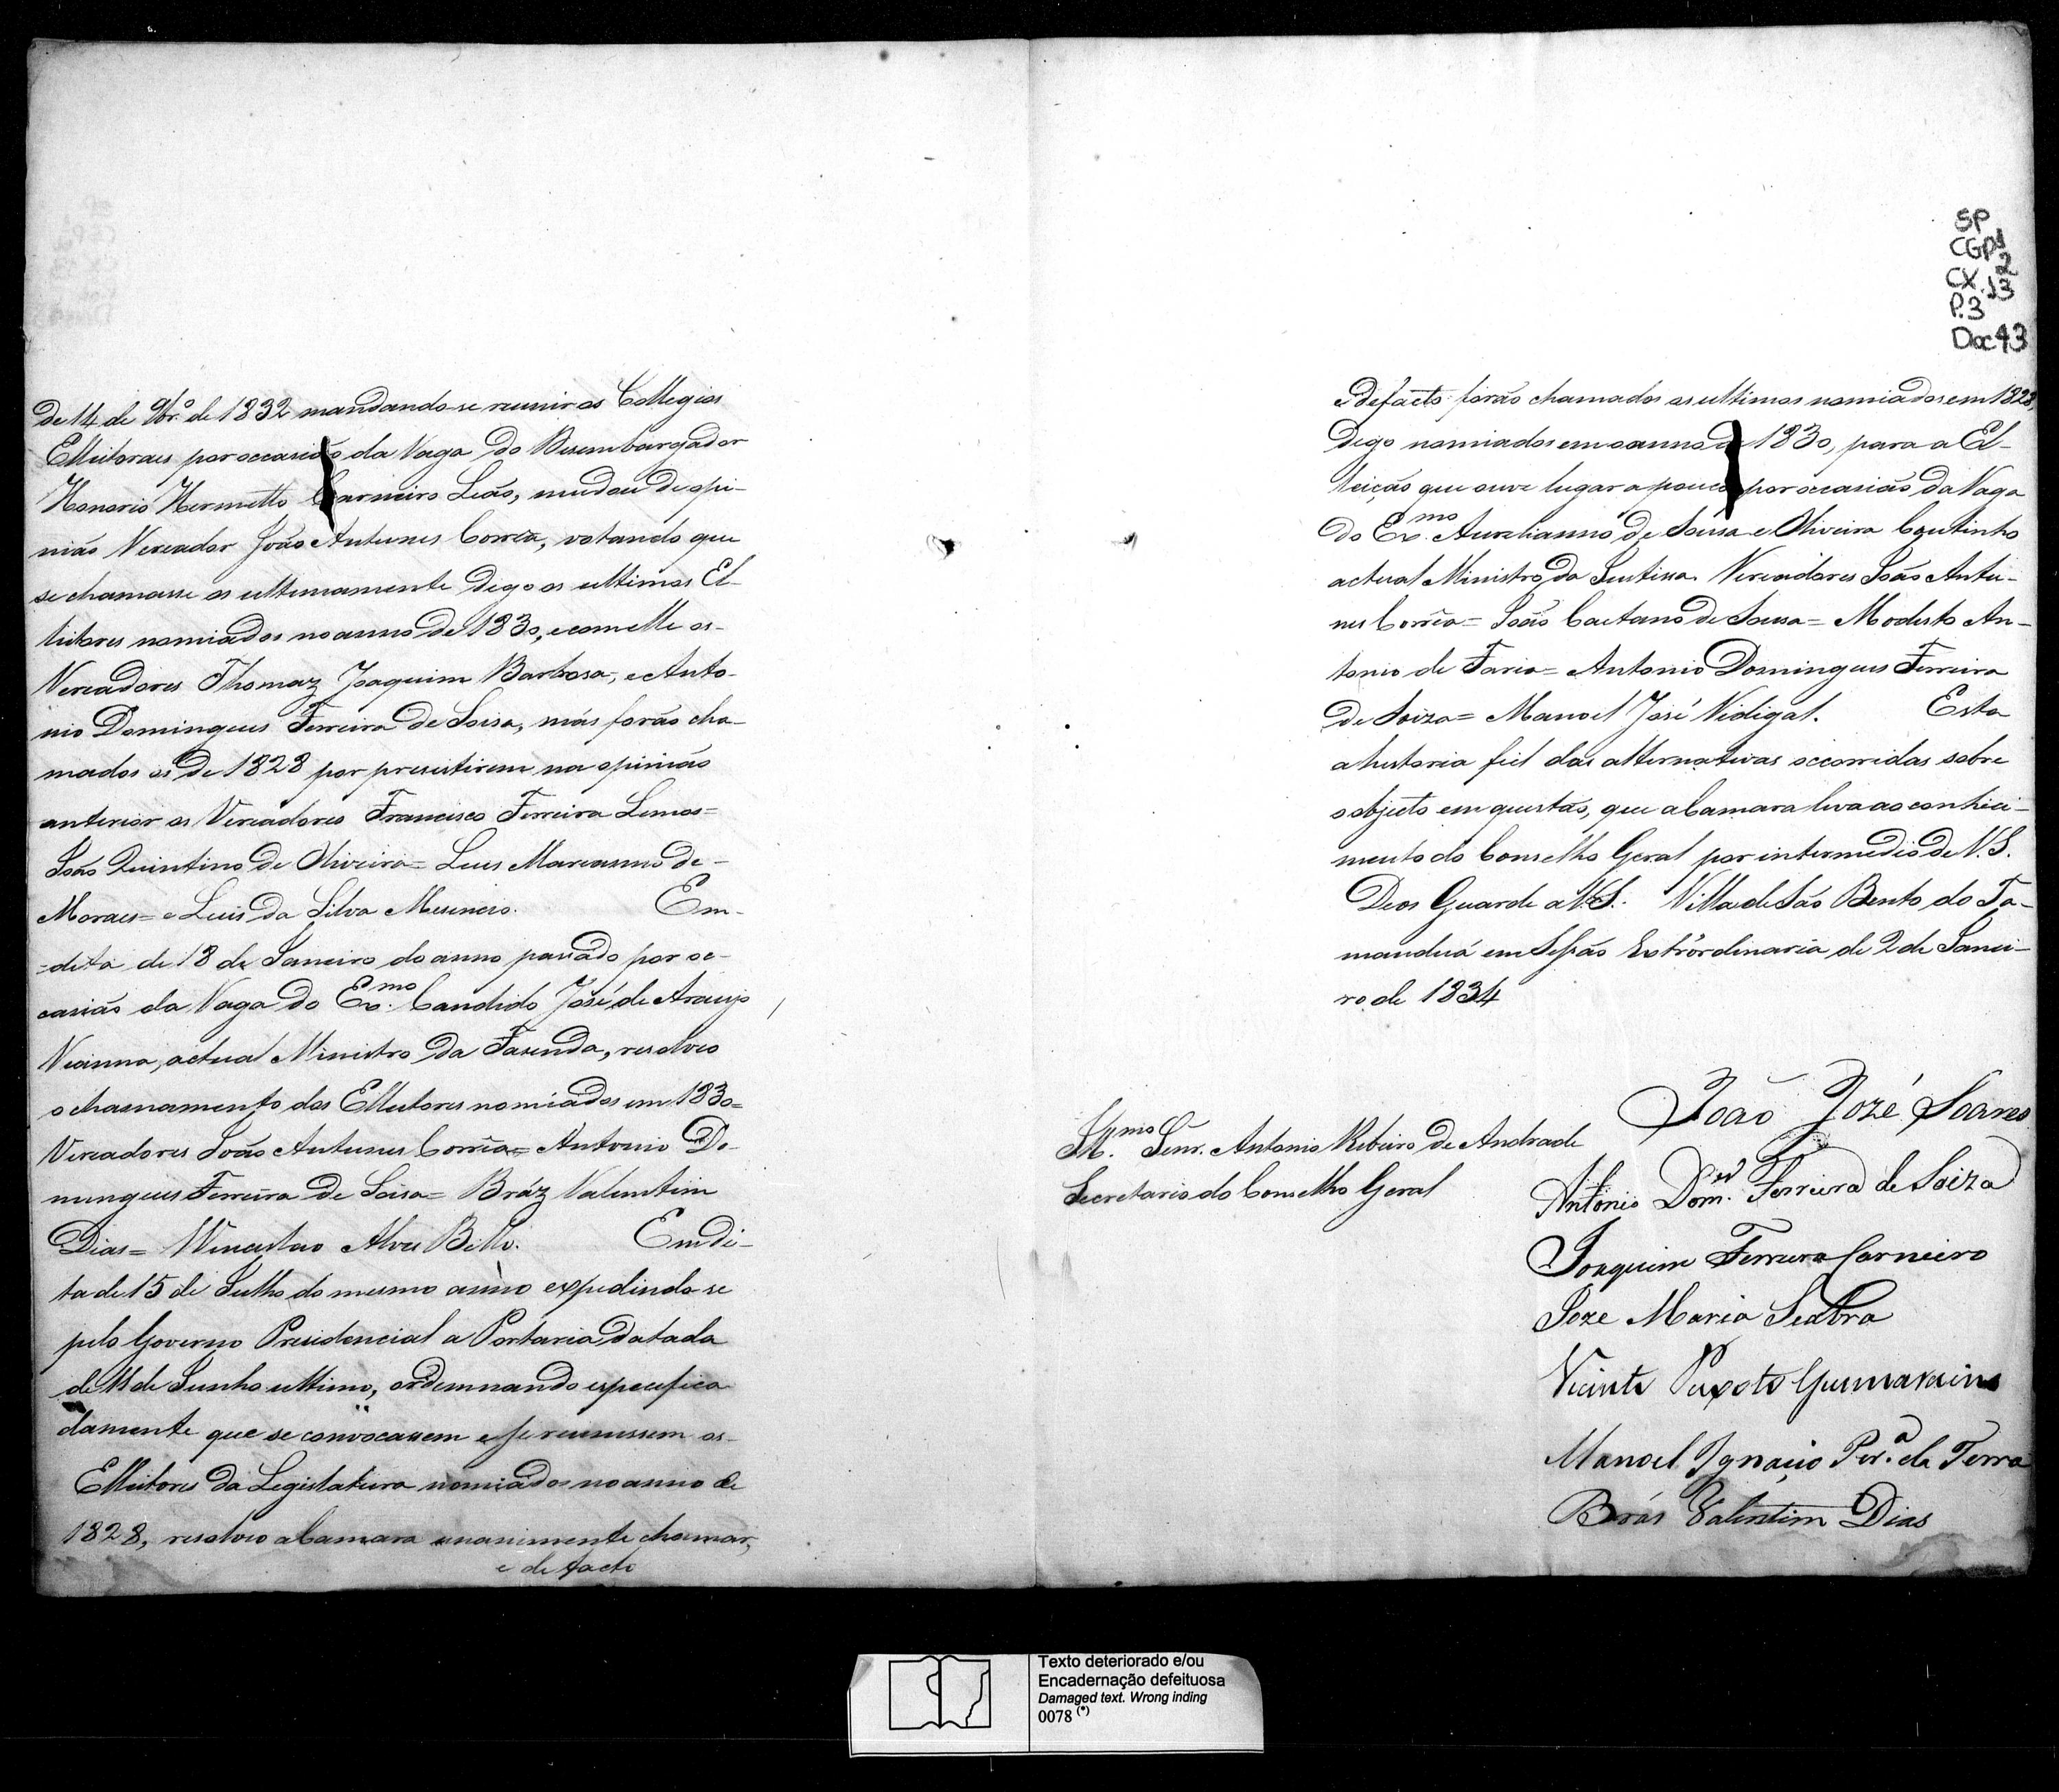 de 14 de 9br.º de 1832 mandando-se reunir os Collegios
Elleitoraes por occasião da Vaga do Desembargador
Honorio Hermetto Carneiro Leão, mudou de opi-
nião Vereador João Antunes Corrêa, votando que
se chamasse os ultimamente digo os ultimos El-
leitores nomiados no anno de 1830, e com elle os
Vereadores Thomaz Joaquim Barbosa, e Anto-
nio Domingues Ferreira de Soisa, más forão cha-
mados os de 1828 por presistirem na opinião
anterior os Vereadores Francisco Ferreira Lemos=
João Quintino de Oliveira= Luis Marianno de-
Moraes= e Luis da Silva. Em-
=dita de 18 de Janeiro do anno passado por oc-
casião da Vaga do Ex.mo Candido José de Araujo
Vianna, actual Ministro da Fasenda, resolveo
o chamamento dos Elleitores nomiados em 1830=
Vereadores João Antunes Corrêa= Antonio Do-
mingues Ferreira de Soisa= Bráz Valentim
Dias= Winceslao Alves Bello. Em di-
ta de 15 de Julho do mesmo anno expedindo-se
pelo Governo Presidencial a Portaria datada
de 11 de Junho ultimo, ordennando especifica
damente que se convocassem e se reunissem os-
Elleitores da Legislatura nomiados no anno de
1828, resolveo a Camara unanimente chamar,
e de facto
SP
CGP1
CX.2
13
P.3
Doc 43
e de facto forão chamados os ultimos nomiados em 1828,
digo nomiados em o anno de 1830, para a El-
leição que ouve lugar a pouco por occasião da Vaga
do Ex.mo Aurelianno de Sousa e Oliveira Coutinho
actual Ministro da Justissa. Vereadores João Antu-
nes Corrêa= João Caetano de Sousa= Modesto An-
tonio de Faria= Antonio Domingues Ferreira
de Soiza= Manoel José Vidigal. Esta
a historia fiel das alternativas occorridas sobre
o objecto em questão, que a Camara leva ao conheci-
mento do Conselho Geral por intermedio de V.S.
Deos Guarde a V.S. Villa de São Bento do Ta-
manduá em Sessão Extrordenaria de 2 de Janei-
ro de 1834
João Jozé Soares
Ill.mo Senr. Antonio Ribeiro de Andrade
Secretario do Conselho Geral
Antonio Dom.es Ferreira de Soiza
Joaquim Ferreira Carneiro
Joze Maria Seabra
Vicente Peixoto Guimarains
Manoel Ignacio Per.a da Terra
Brás Valentim Dias
Texto deteriorado e/ou
Encadernação defeituosa
Damaged text. Wrong inding
0078 (*)